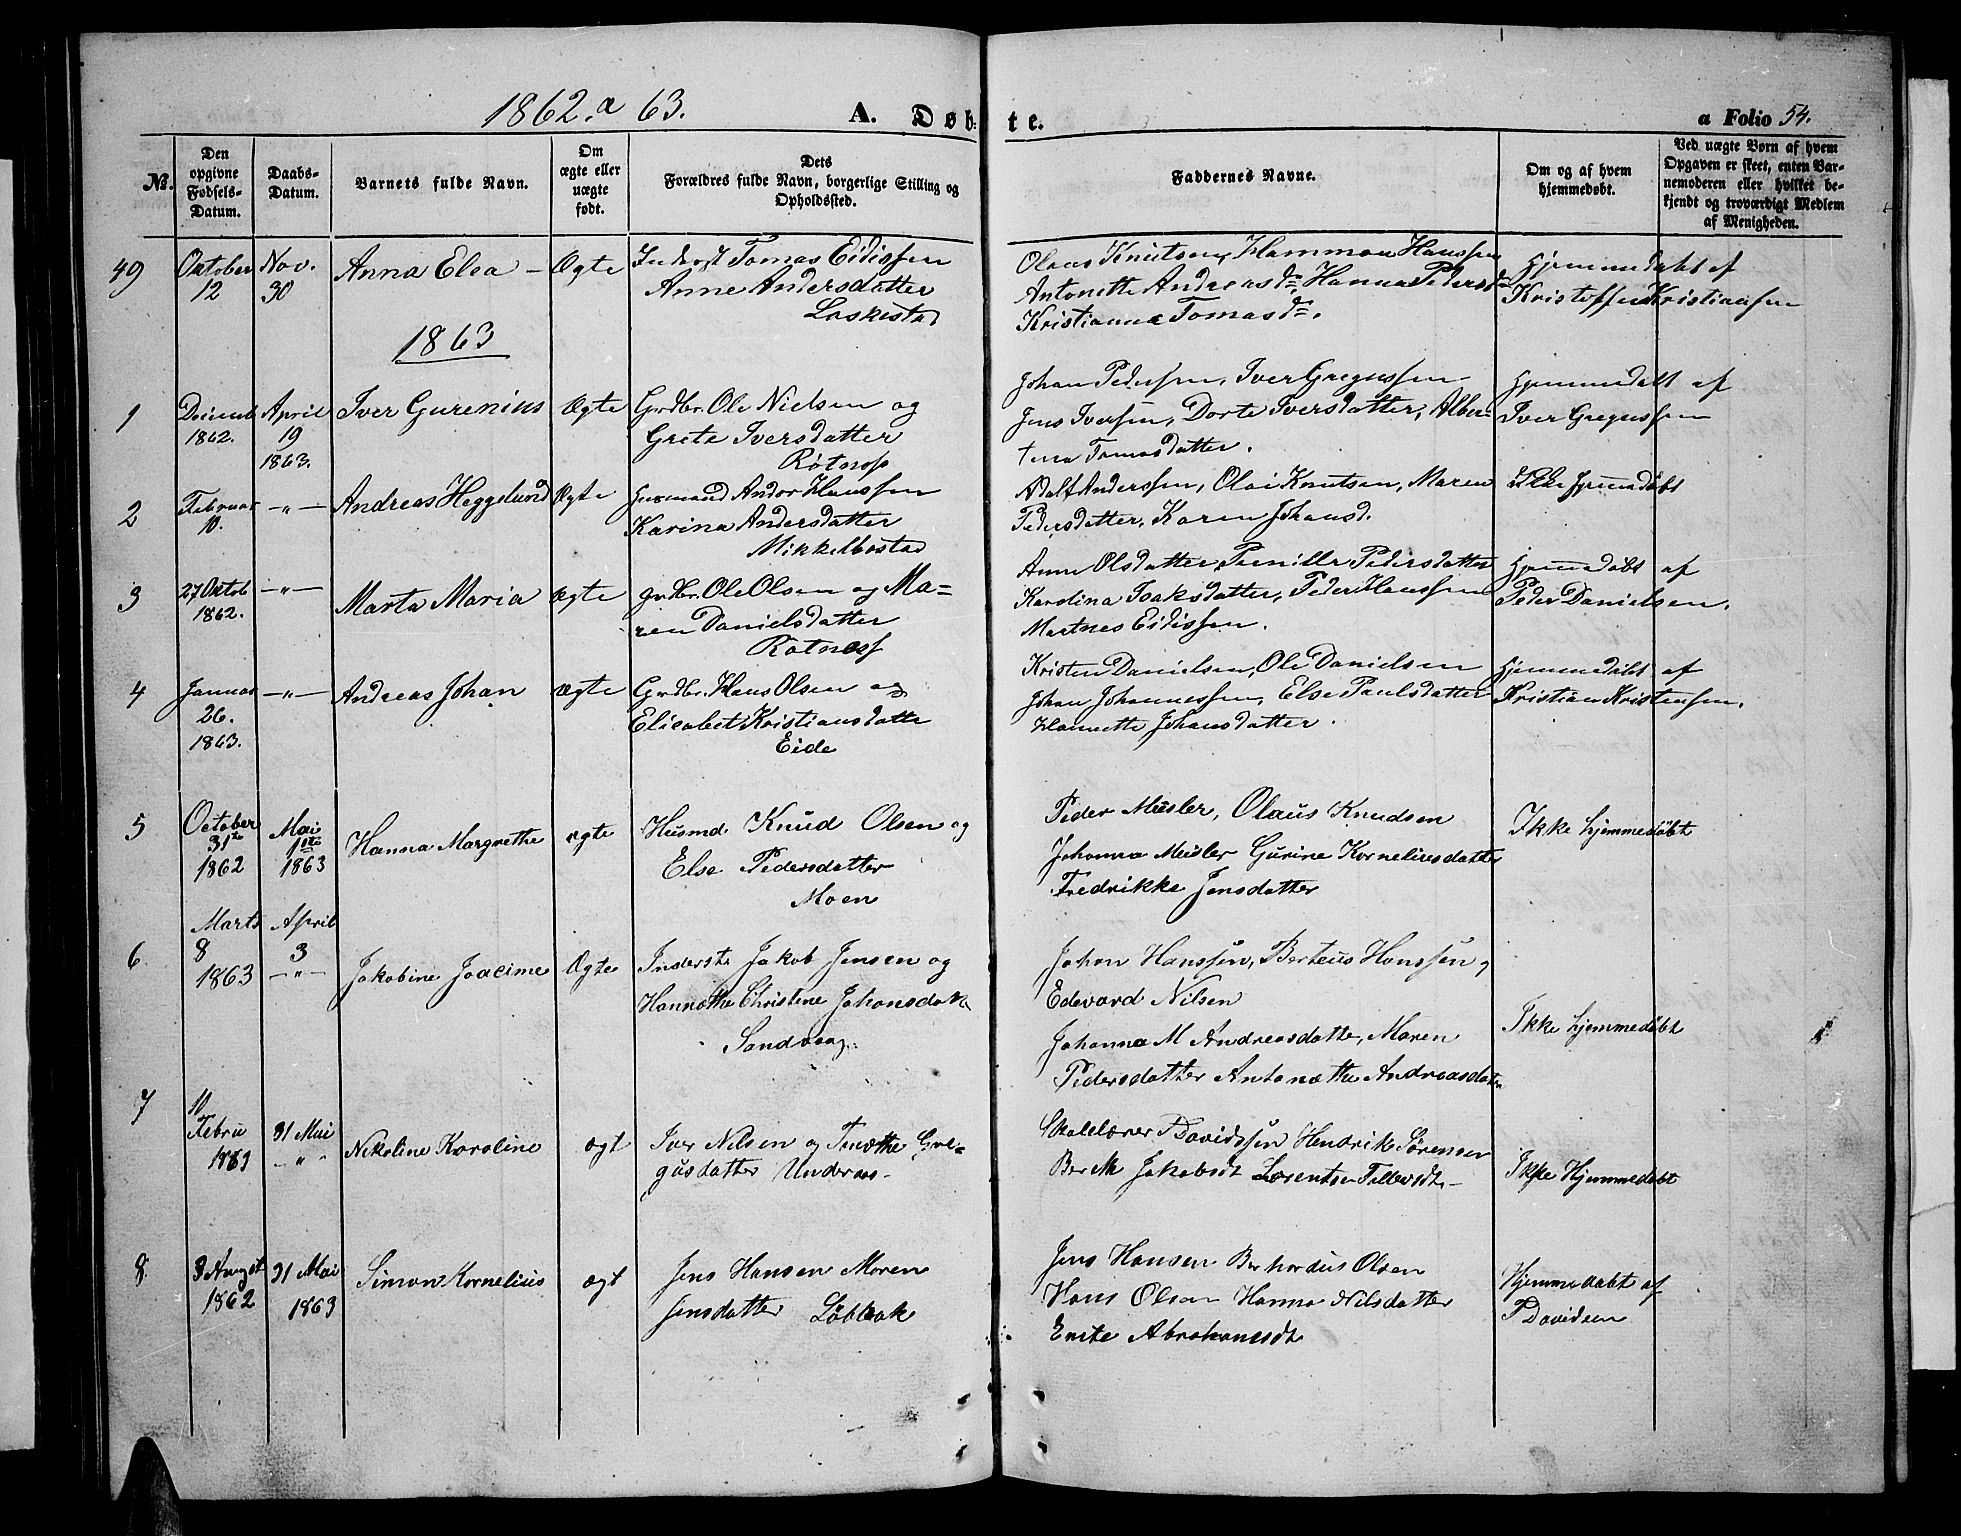 1862 a 63.
A. Døb-
te.
a Folio 54.
No.
Den opgivne Fødsels-Datum.
Daabs-Datum.
Barnets fulde Navn.
Om ægte eller uægte født.
Dets Forældres fulde Navn, borgerlige Stilling og Opholdssted.
Faddernes Navne.
Om og af hvem hjemmedøbt.
Ved uægte Børn af hvem Opgaven er skeet, enten Barnemoderen eller hvilket bekjendt og troværdigt Medlem af Menigheden.
49 October 12 Nov. 30 Anna Elea - Ægte Inderst Tomas Eidissen
Anne Andersdatter
Laskestad
Olaus Knutsen, Hammon Hanssen
Antonette Andreasdr, Hanna Pedersd
Kristianna Tomasdr.
Hjemmedøbt af
Kristoffer Kristiansen
1863
1 Decemb 1862. April 19 1863. Iver Gurenius Ægte Grdbr. Ole Nielsen og
Grete Iversdatter
Røtnes
Johan Pedersen, Iver Gregussen
Jens Iversen, Dorte Iversdatter, Alber-
tina Tomasdatter.
Hjemmedøbt af
Iver Gregussen
2 Februar 10. -"- Andreas Heggelund Ægte Husmand Andor Hanssen
Karina Andersdatter
Mikkelbostad
Adolf Anderssen, Olai Knutsen, Maren
Pedersdatter, Karen Johansd.
Ikke hjemmdøbt
3 27 Octob 1862. -"- Marta Maria Ægte Grdbr. Ole Olsen og Ma-
ren Danielsdatter
Rotness
Anne Olsdatter, Pernille Pedersdatter
Karolina Isaksdatter, Peder Hanssen
Martnes Eidissen.
Hjemmedøbt af
Peder Danielsen.
4 Januar 26. 1863. -"- Andreas Johan Ægte Grdbr. Hans Olsen og
Elisabet Kristiansdatte
Eide
Kristen Danielsen, Ole Danielsen
Johan Johannessen, Else Paulsdatter
Hannette Johansdatter.
Hjemmedøbt af
Kristian Kristensen.
5 October 31te 1862 Mai 1ste 1863 Hanna Margrethe ægte Husmd. Knud Olsen og
Else Pedersdatter
Moen
Peder Meisler, Olaus Knudsen
Johanna Meisler Gurine Korneliusdatter
Fredrikke Jensdatter
Ikke hjemmedøbt
6 Marts 8 1863 April 3 -"- Jakobine Joacime Ægte Inderst Jakob Jensen og
Hannethe Christine Johansdatte
Sandvaag
Johan Hanssen, Berteus Hanssen,
Edevard Nilsen
Johanna M Andreasdatte, Maren
Pedersdatter Antonæthe Andreasdater
Ikke hjemmedøbt
7 10 Febru 1863 31 Mai " " Nikoline Karoline ægt Iver Nilsen og Tenæthe Gre-
gusdatter Undernes-
Skolelærer P Davidssen Hendrik Sørensen
Ber M Jakobsdt Lorentse Tollevsdt-
Ikke Hjemmedøbt
8 3 August 1862 31 Mai 1863 Simon Kornelius ægt Jens Hansen Maren
Jensdatter Løbbak
Jens Hansen Berhardus Olsen
Hans Olsen Hanna Nilsdatter
Enite Abrahamsdt
Hjemmedøbt af
P Davidsen